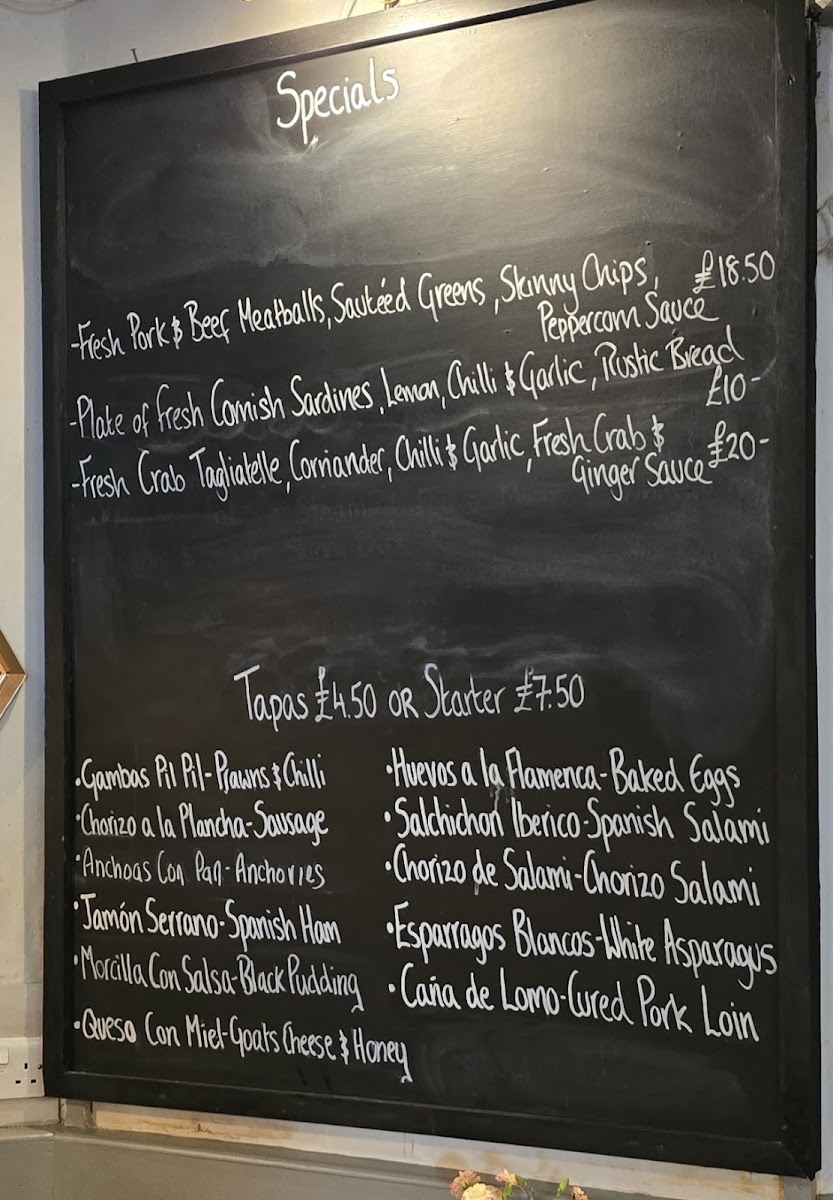 Specials
-Fresh Pork & Beef Meatballs, Sautéed Greens, Skinny Chips, £18.50
Peppercorn Sauce
-Plate of Fresh Cornish Sardines, Lemon, Chilli & Garlic, Rustic Bread
£10-
-Fresh Crab Tagliatelle, Corriander, Chilli & Garlic, Fresh Crab & £20-
Ginger Sauce
Tapas £4.50 OR Starter £7.50
•Gambas Pil Pil-Prawns & Chilli
•Chorizo a la Plancha-Sausage
•Anchoas Con Pan-Anchovies
•Jamón Serrano-Spanish Ham
•Morcilla Con Salsa-Black Pudding
•Queso Con Miel-Goats Cheese & Honey
•Huevos a la Flamenca-Baked Eggs
•Salchichon Iberico-Spanish Salami
•Chorizo de Salami-Chorizo Salami
•Esparragos Blancos-White Asparagus
•Caña de Lomo-Cured Pork Loin